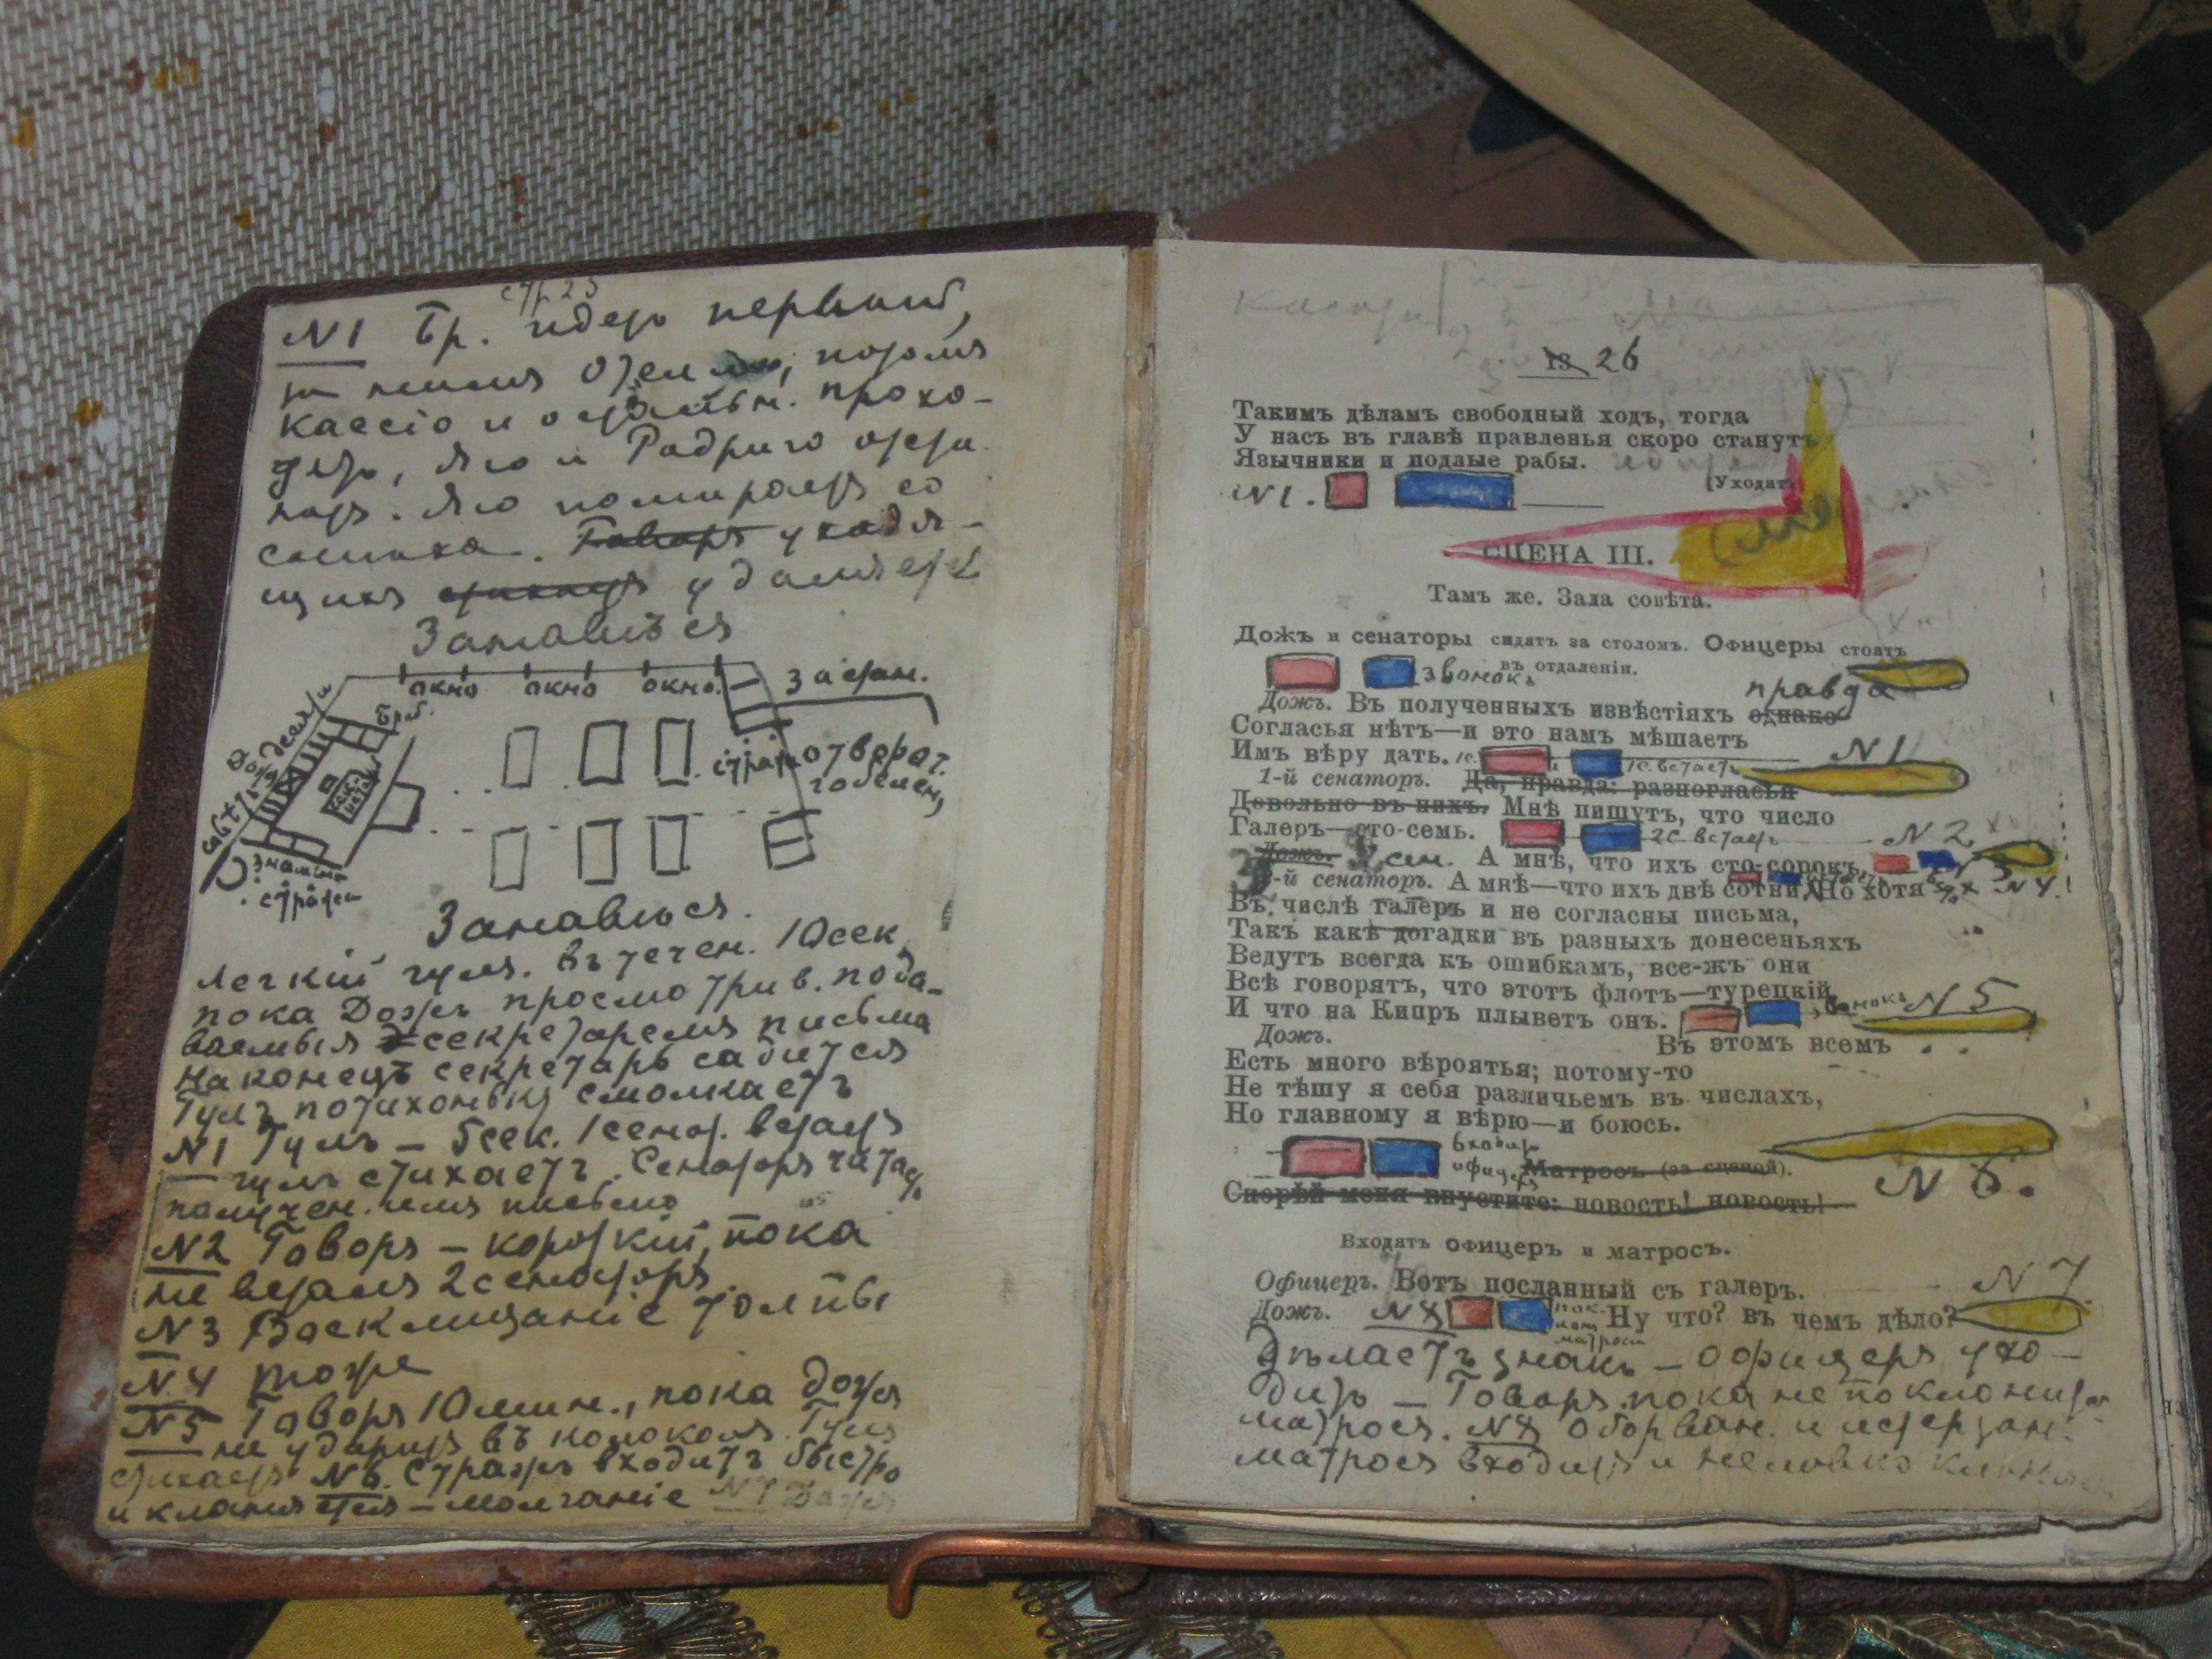 стр 23
N1 Бр. идетъ первый,
за нимъ Отелло, потомъ
Кассіо и остальн. прохо-
дятъ, Яго и Родриго
Яго
Говоръ уходя-
щихъ стихаетъ удаляется
Занавѣсъ
окно окно окно
За стан.
Брб.
стража отверат.
гобелен,
знамена
стража
Занавѣсъ.
Легкій гулъ. Въ течен. 10 сек
пока Дожъ просмотрив. пода-
ваемыя секретаремъ письма
Наконецъ секретарь садится
Гулъ потихоньку смолкаетъ
N1 Гулъ – 5 сек. 1 сенат. встаетъ
– гулъ стихаетъ. Сенаторъ читаетъ
получен. имъ письмо
N2 Говоръ – короткій, пока
не всталъ 2 сенаторъ.
N3 Восклицаніе толпы
N4 тоже
N5 Говоръ 10 мин., пока дожъ
не ударитъ въ колоколъ. Гулъ
стихаетъ N6. Стражъ входитъ быстро
и кланяется – молчаніе N7 Дожъ
13 26
Такимъ дѣламъ свободный ходъ, тогда
У насъ въ главѣ правленья скоро станутъ
Язычники и подлые рабы.
(Уходятъ)
N1.
СЦЕНА III.
Тамъ же. Зала совѣта.
Дожъ и сенаторы сидятъ за столомъ. Офицеры стоятъ
въ отдаленіи.
звонокъ
правда
Дожъ. Въ полученныхъ извѣстіяхъ однако
Согласья нѣтъ—и это намъ мѣшаетъ
Имъ вѣру дать. 1с. 1с. встаетъ N1
1-й сенаторъ. Да, правда: разногласья
Довольно въ нихъ. Мнѣ пишутъ, что число
Галеръ—сто-семь. 2с. встаетъ N2
Дожъ. сен. А мнѣ, что ихъ сто-сорокъ N3
-й сенаторъ. А мнѣ—что ихъ двѣ сотни. Но хотя N4.
Въ числѣ галеръ и не согласны письма,
Такъ какъ догадки въ разныхъ донесеньяхъ
Ведутъ всегда къ ошибкамъ, все-жъ они
Всѣ говорятъ, что этотъ флотъ—турецкій
И что на Кипръ плыветъ онъ. звонокъ N5
Дожъ. Въ этомъ всемъ
Есть много вѣроятья; потому-то
Не тѣшу я себя различьемъ въ числахъ,
Но главному я вѣрю—и боюсь.
входитъ
офицеръ Матросъ (за сценой).
Скорѣй меня впустите: новость! новость! N6.
Входятъ офицеръ и матросъ.
Офицеръ. Вотъ посланный съ галеръ. N7
Дожъ. N8 матроса Ну что? въ чемъ дѣло?
Дѣлаетъ знакъ – офицеръ ухо-
дитъ – Говоръ пока не поклонится
матросъ. N8 Оборван. и истерзан.
матросъ входитъ и неловко кланяется